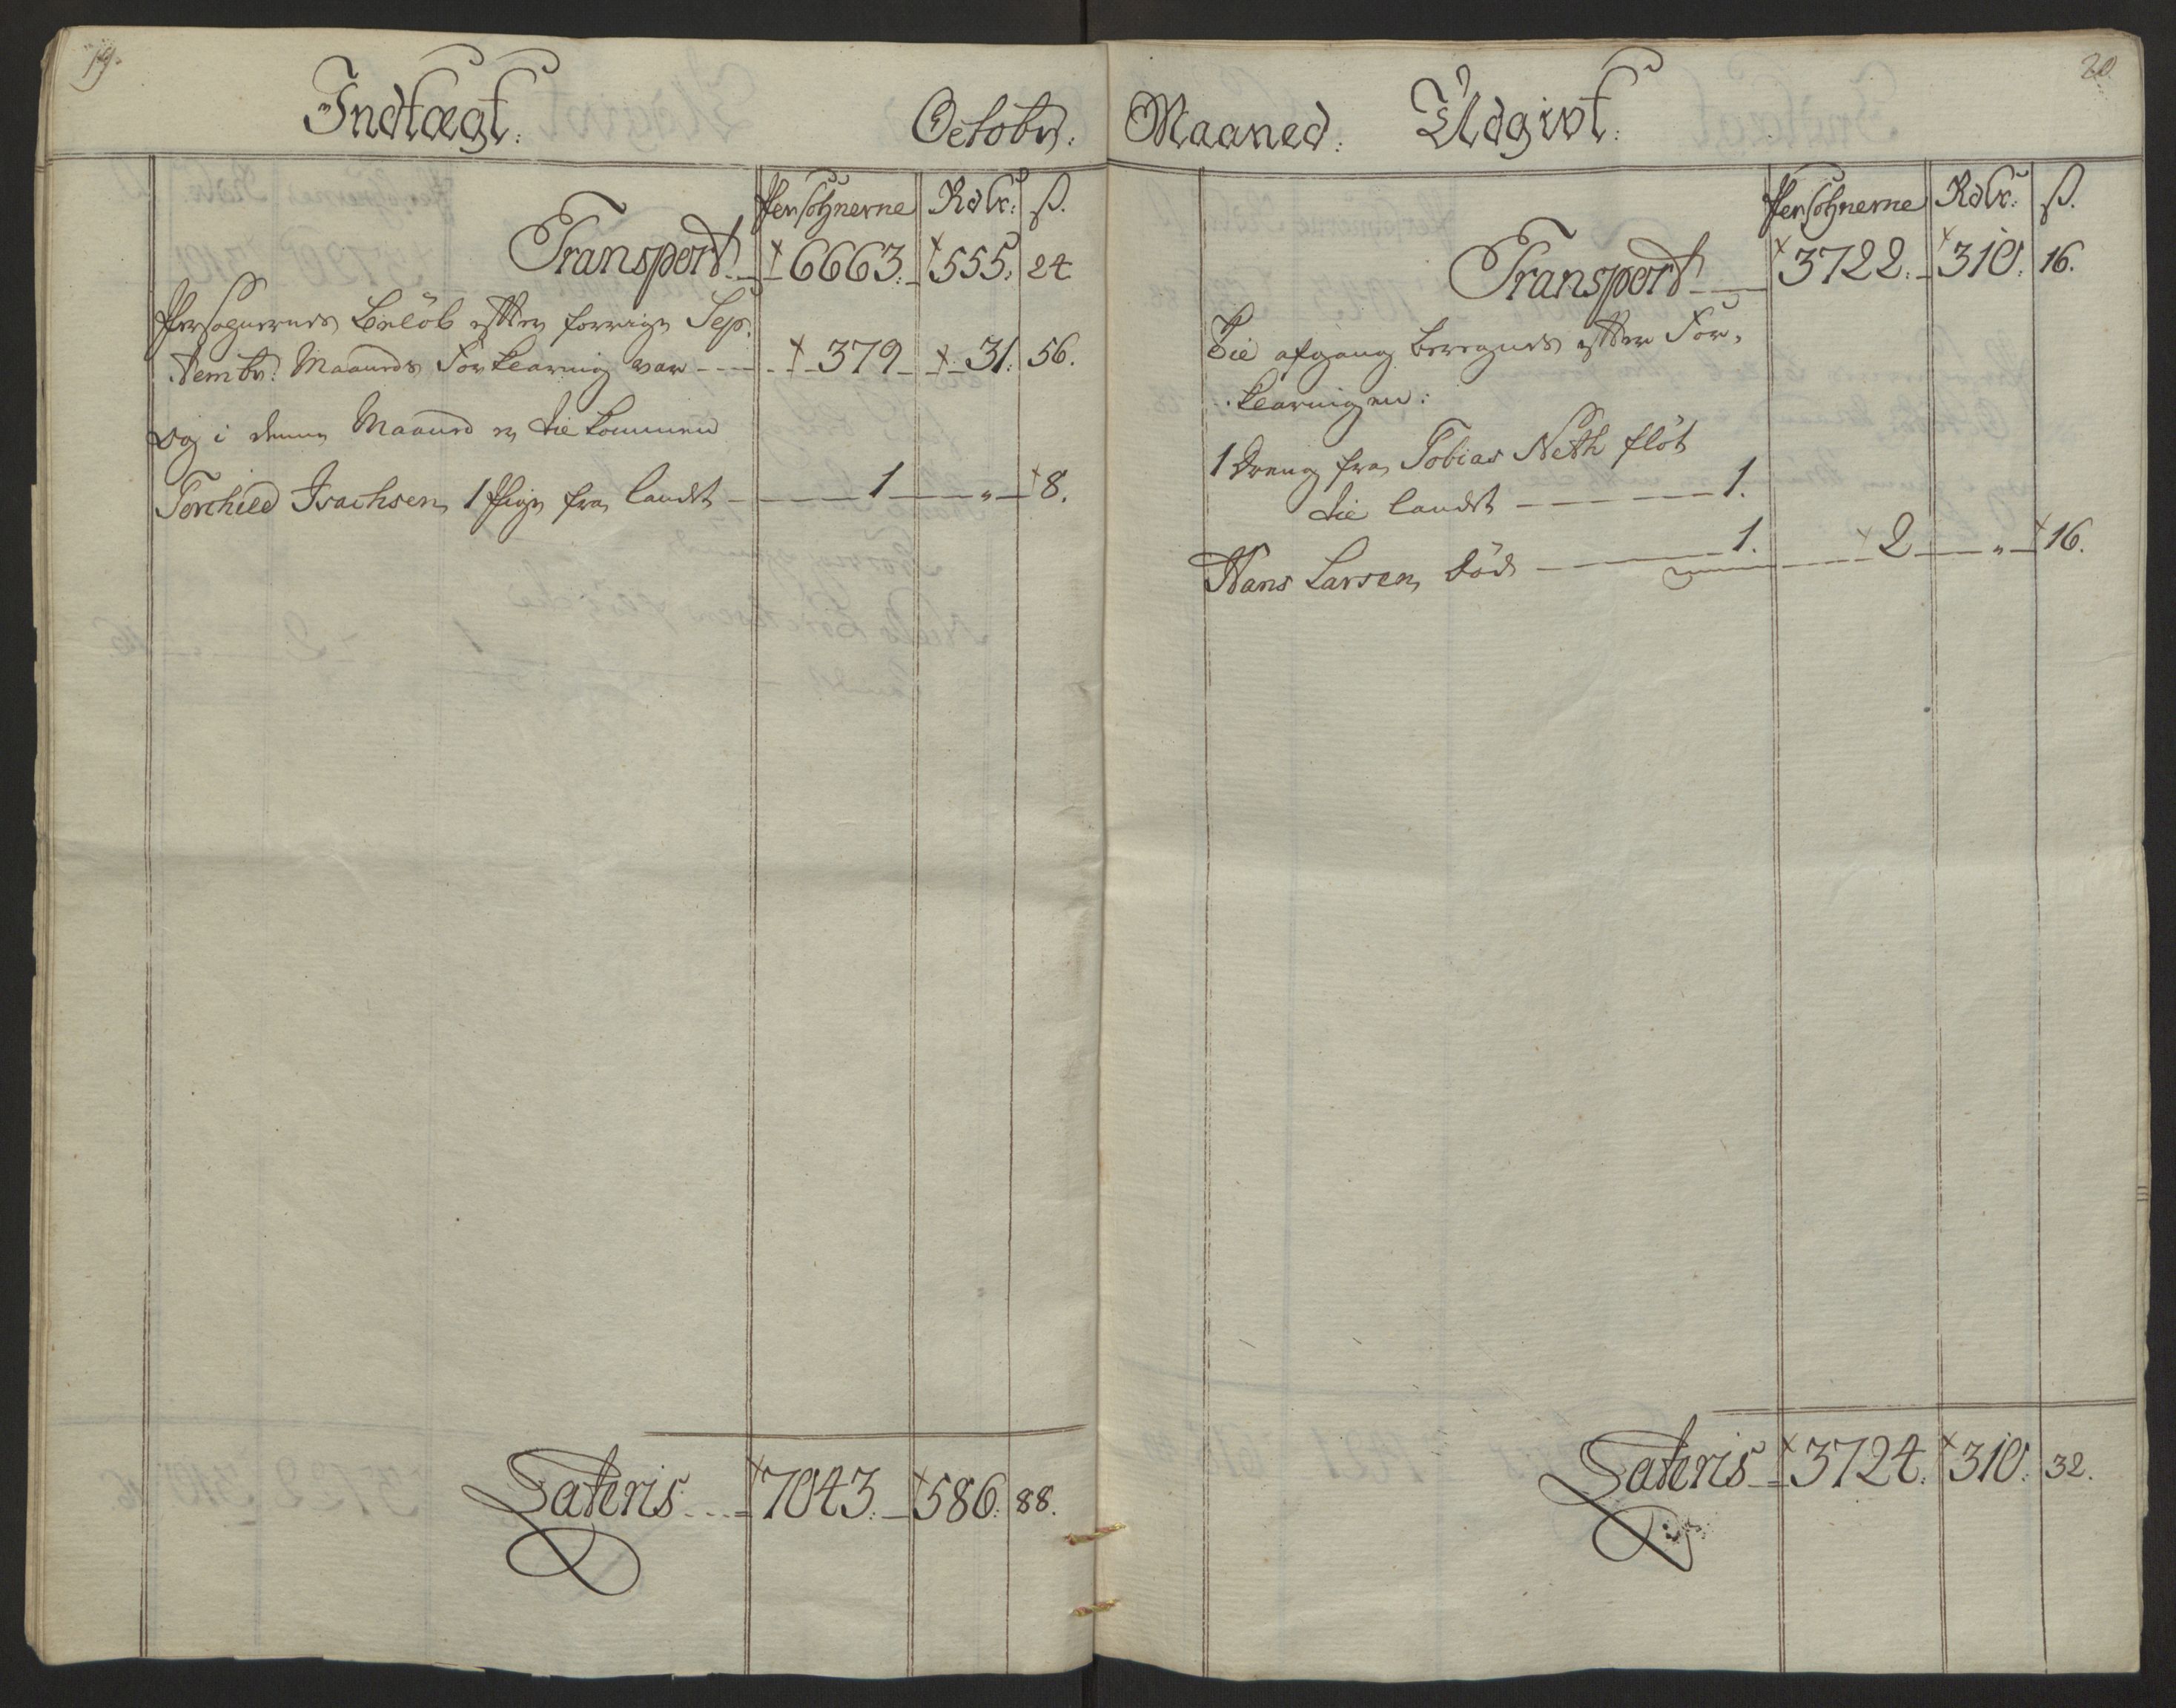 19.
Indtægt: Octobr:
Persohnerne Rdlr: ß.
Transport 6663. 555. 24
Persohnernes Beløb efter forrige Sep¬
tembr: Maaneds Forklaring var 379 31. 56.
og i denne Maaned er tilkommen
Torchild Isachsen 1 Pige fra landet 1 " 8.
Lateris 7043. 586. 88.
20.
Maaned: Üdgivt:
Persohnerne Rdlr: ß.
Transport 3722. 310. 16.
Til afgang beregnes efter For¬
klaringen:
1 Dreng fra Tobias Neth fløt
til landet 1.
Hans Larsen død 1. 2 " 16.
Lateris 3724. 310. 32.